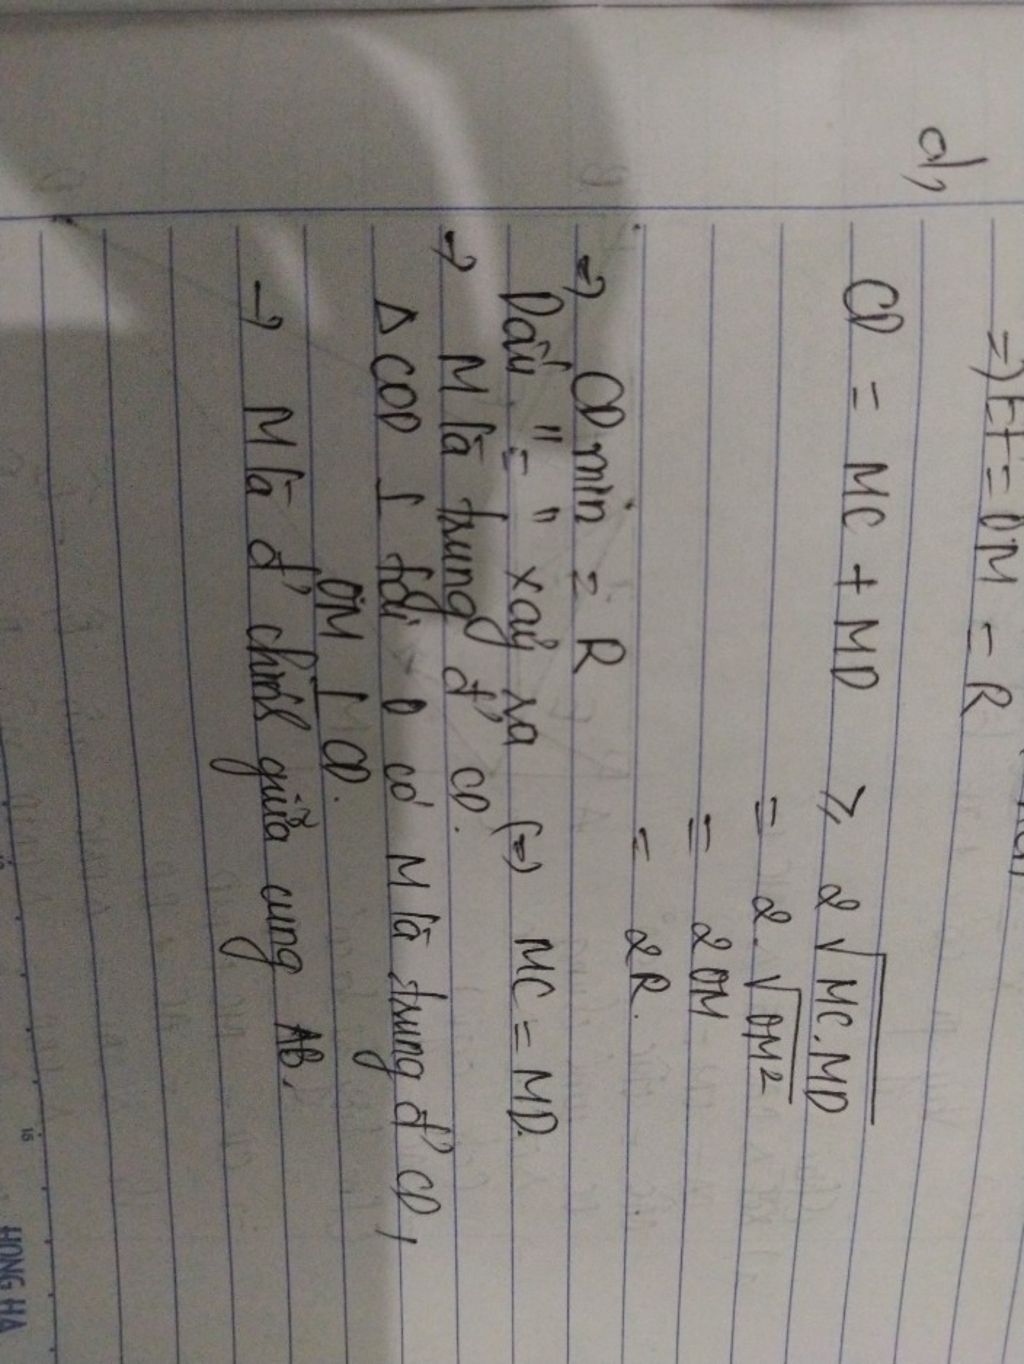 =) EF = OM = R
d,
CD = MC + MD ≥ 2√MC.MD
= 2.√OM²
= 2OM
= 2R.
=) CD min = R
Dấu "=" xảy ra (=) MC = MD.
→ M là trung đ' CD.
Δ COD ⊥ tại O có M là trung đ' CD,
OM ⊥ CD.
→ M là đ' chính giữa cung AB.
15
HONG HA